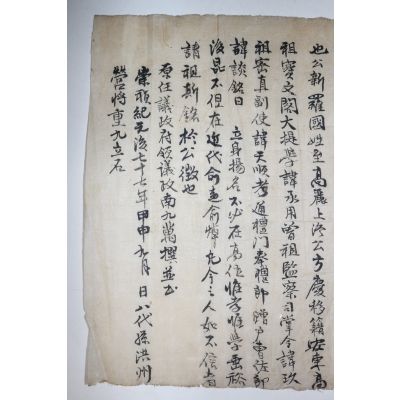 也公新羅國姓至高麗上洛公方慶移籍安東高
祖寶文閣大提學諱承用曾祖監察司掌令諱玖
祖密直副使諱天順考通禮門奉禮郎贈戶曹佐郎
諱談銘曰 立身揚名不必在高位惟孝惟學垂裕
後昆不但在近代俞遠俞焯凡今之人如不信者
請視斯銘於公徵也
原任議政府領議政南九萬撰並書
崇禎紀元後七十七年甲申九月 日八代孫洪州
營將重九立石